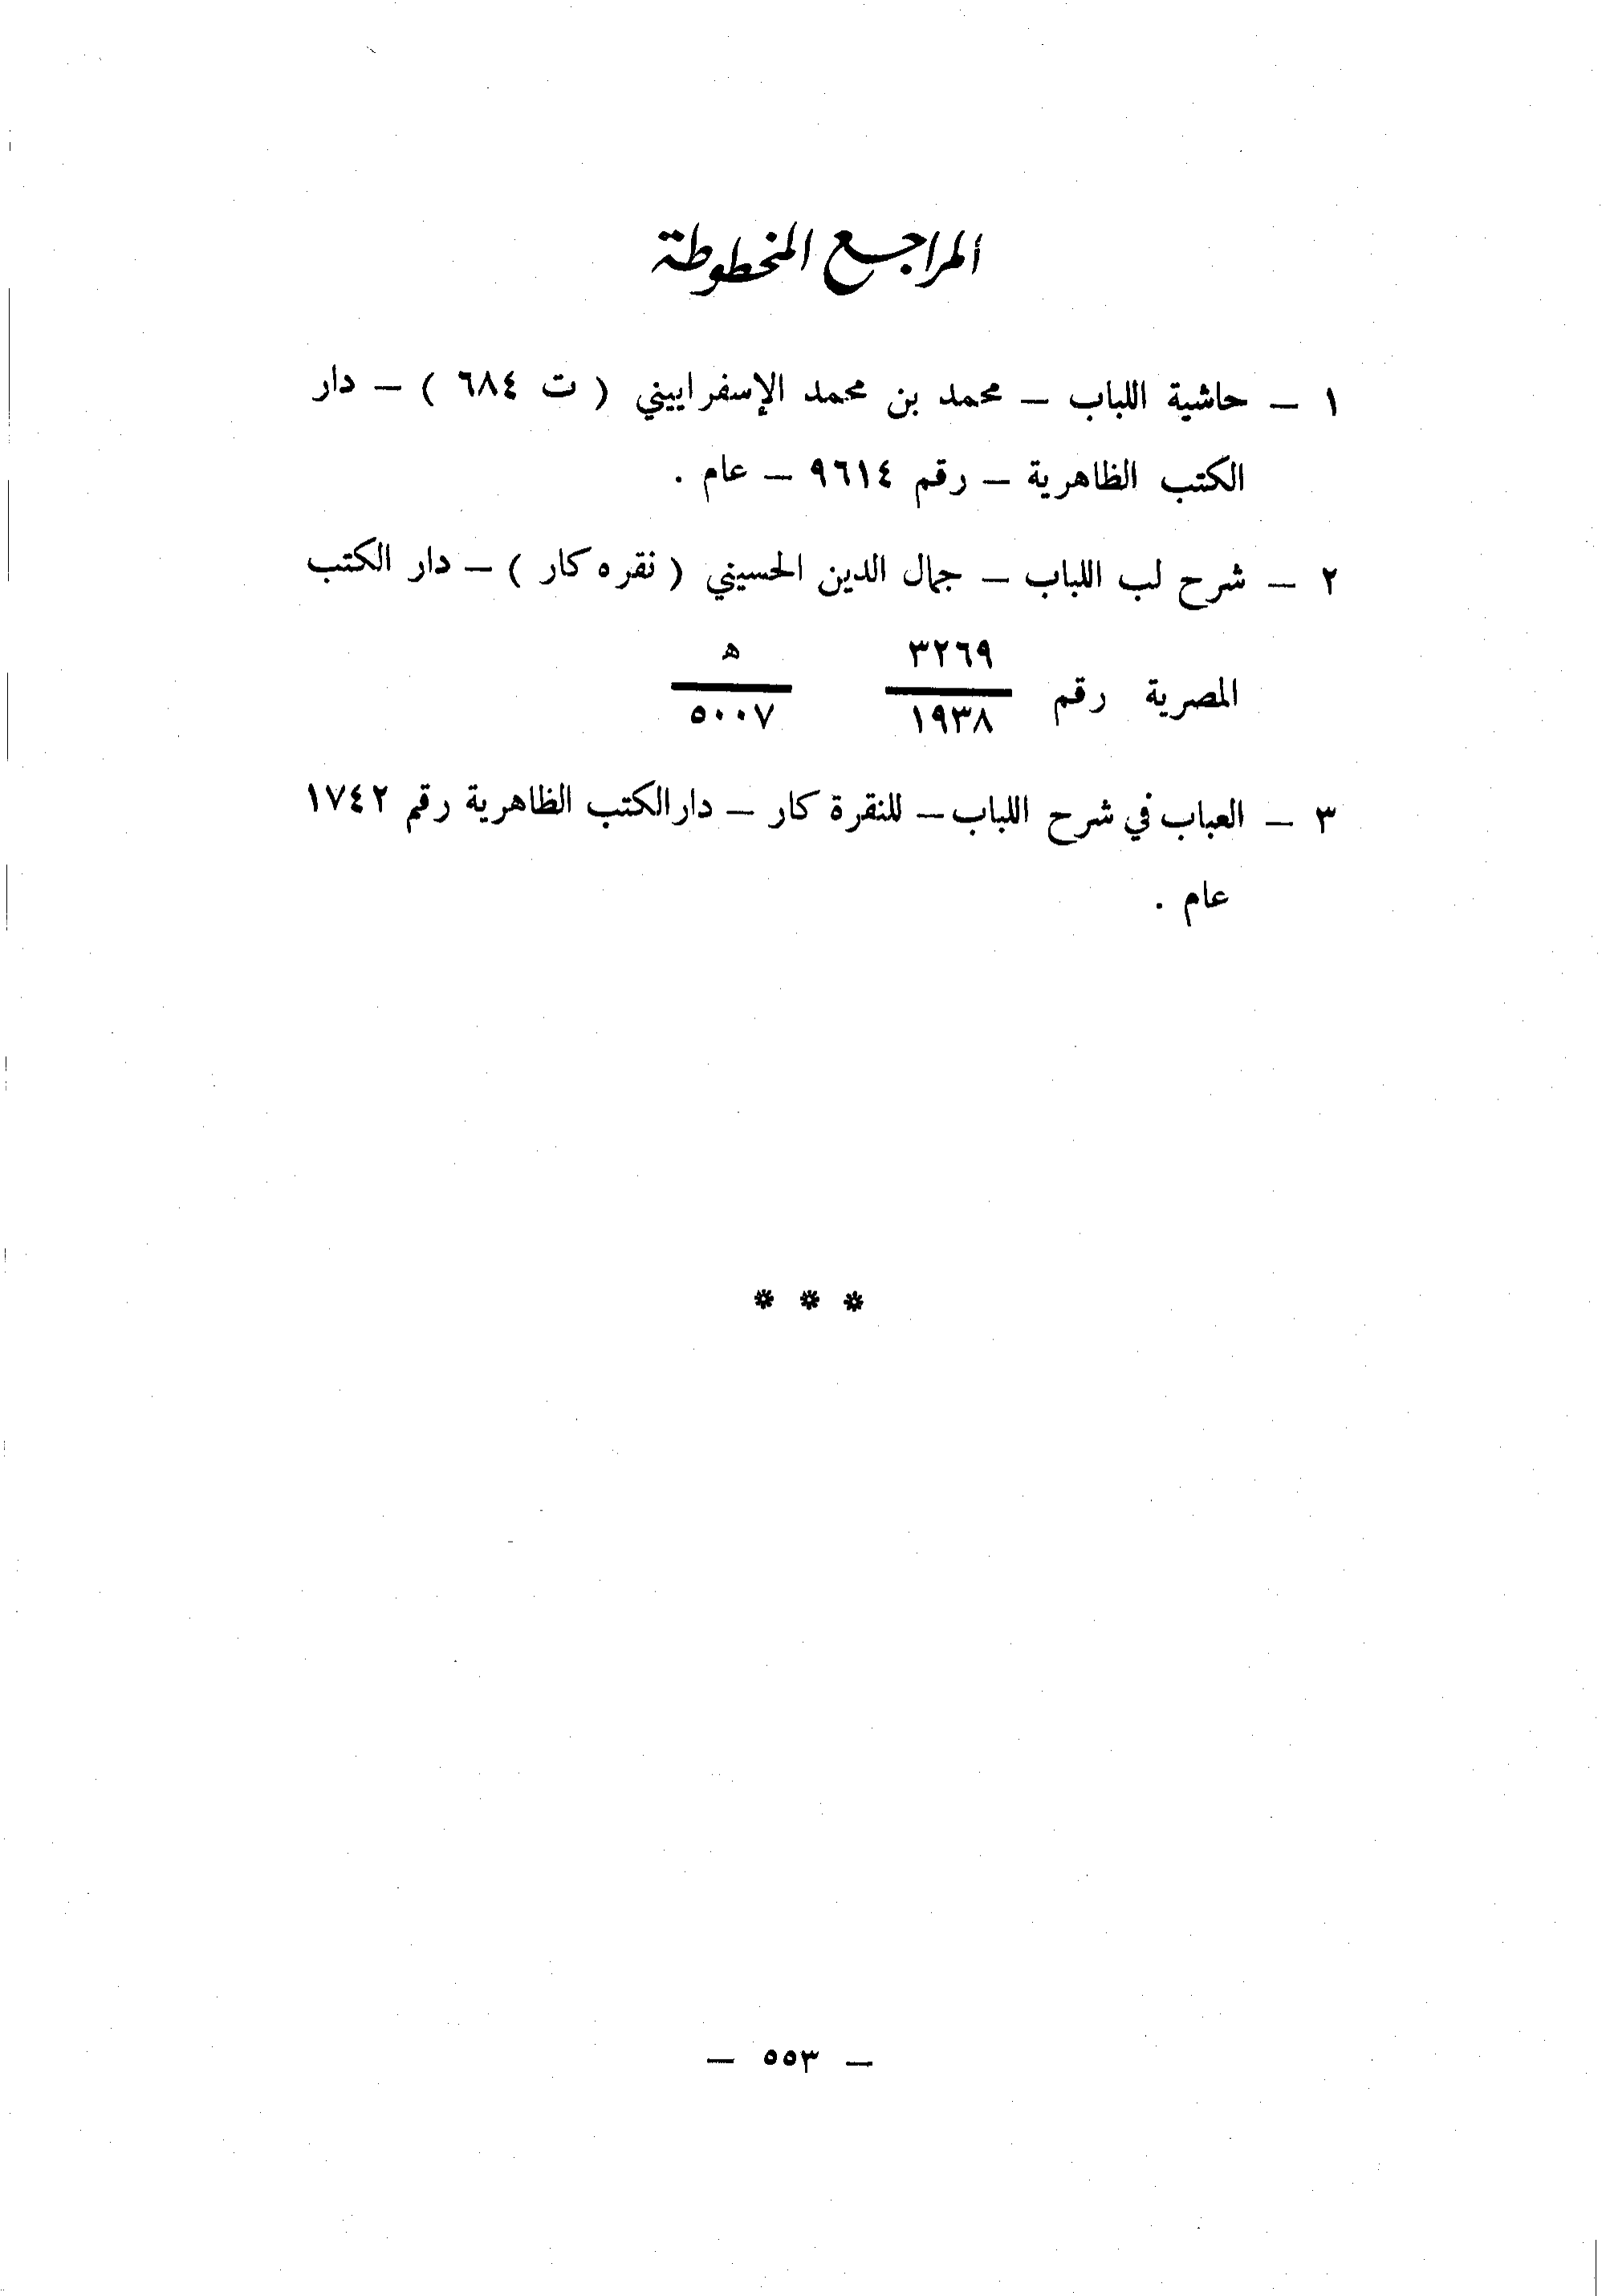 المراجع المخطوطة
١ – حاشية اللباب – محمد بن محمد الإسفراييني ( ت ٦٨٤ ) – دار
الكتب الظاهرية – رقم ٩٦١٤ – عام .
٢ – شرح لب اللباب – جمال الدين الحسيني ( نقره كار ) – دار الكتب
٣٢٦٩ ه
المصرية رقم
١٩٣٨ ٥٠٠٧
٣ – العباب في شرح اللباب – للنقرة كار – دار الكتب الظاهرية رقم ١٧٤٢
عام .
* * *
– ٥٥٣ –